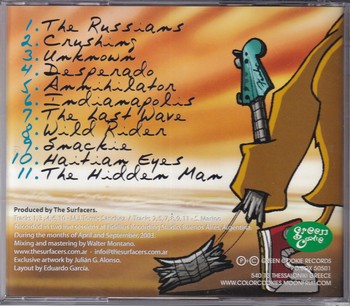 1. The Russians
2. Crushing
3. Unknown
4. Desperado
5. Annihilator
6. Indianapolis
7. The Last Wave
8. Wild Rider
9. Smackie
10. Haitian Eyes
11. The Hidden Man
Produced by The Surfacers.
During the months of April and September 2003.
Mixing and mastering by Walter Montano.
www.thesurfacers.com www.thesurfacers.com.ar
Exclusive artwork by Julián G. Alonso.
Layout by Eduardo García.
green
Cookie
GREEN COOKIE RECORDS
50501
THESSALONIKI GREECE